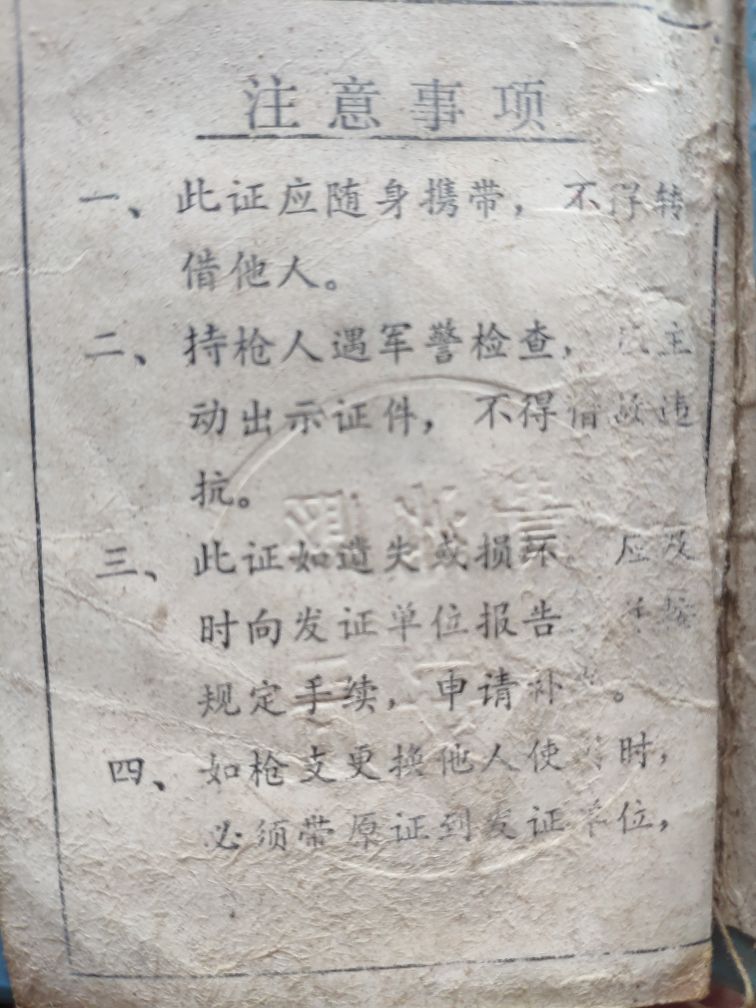 注意事项
一、此证应随身携带，不得转
借他人。
二、持枪人遇军警检查，应主
动出示证件，不得借故违
抗。
三、此证如遗失或损坏，应及
时向发证单位报告，按
规定手续，申请补。
四、如枪支更换他人使用时，
必须带原证到发证单位，